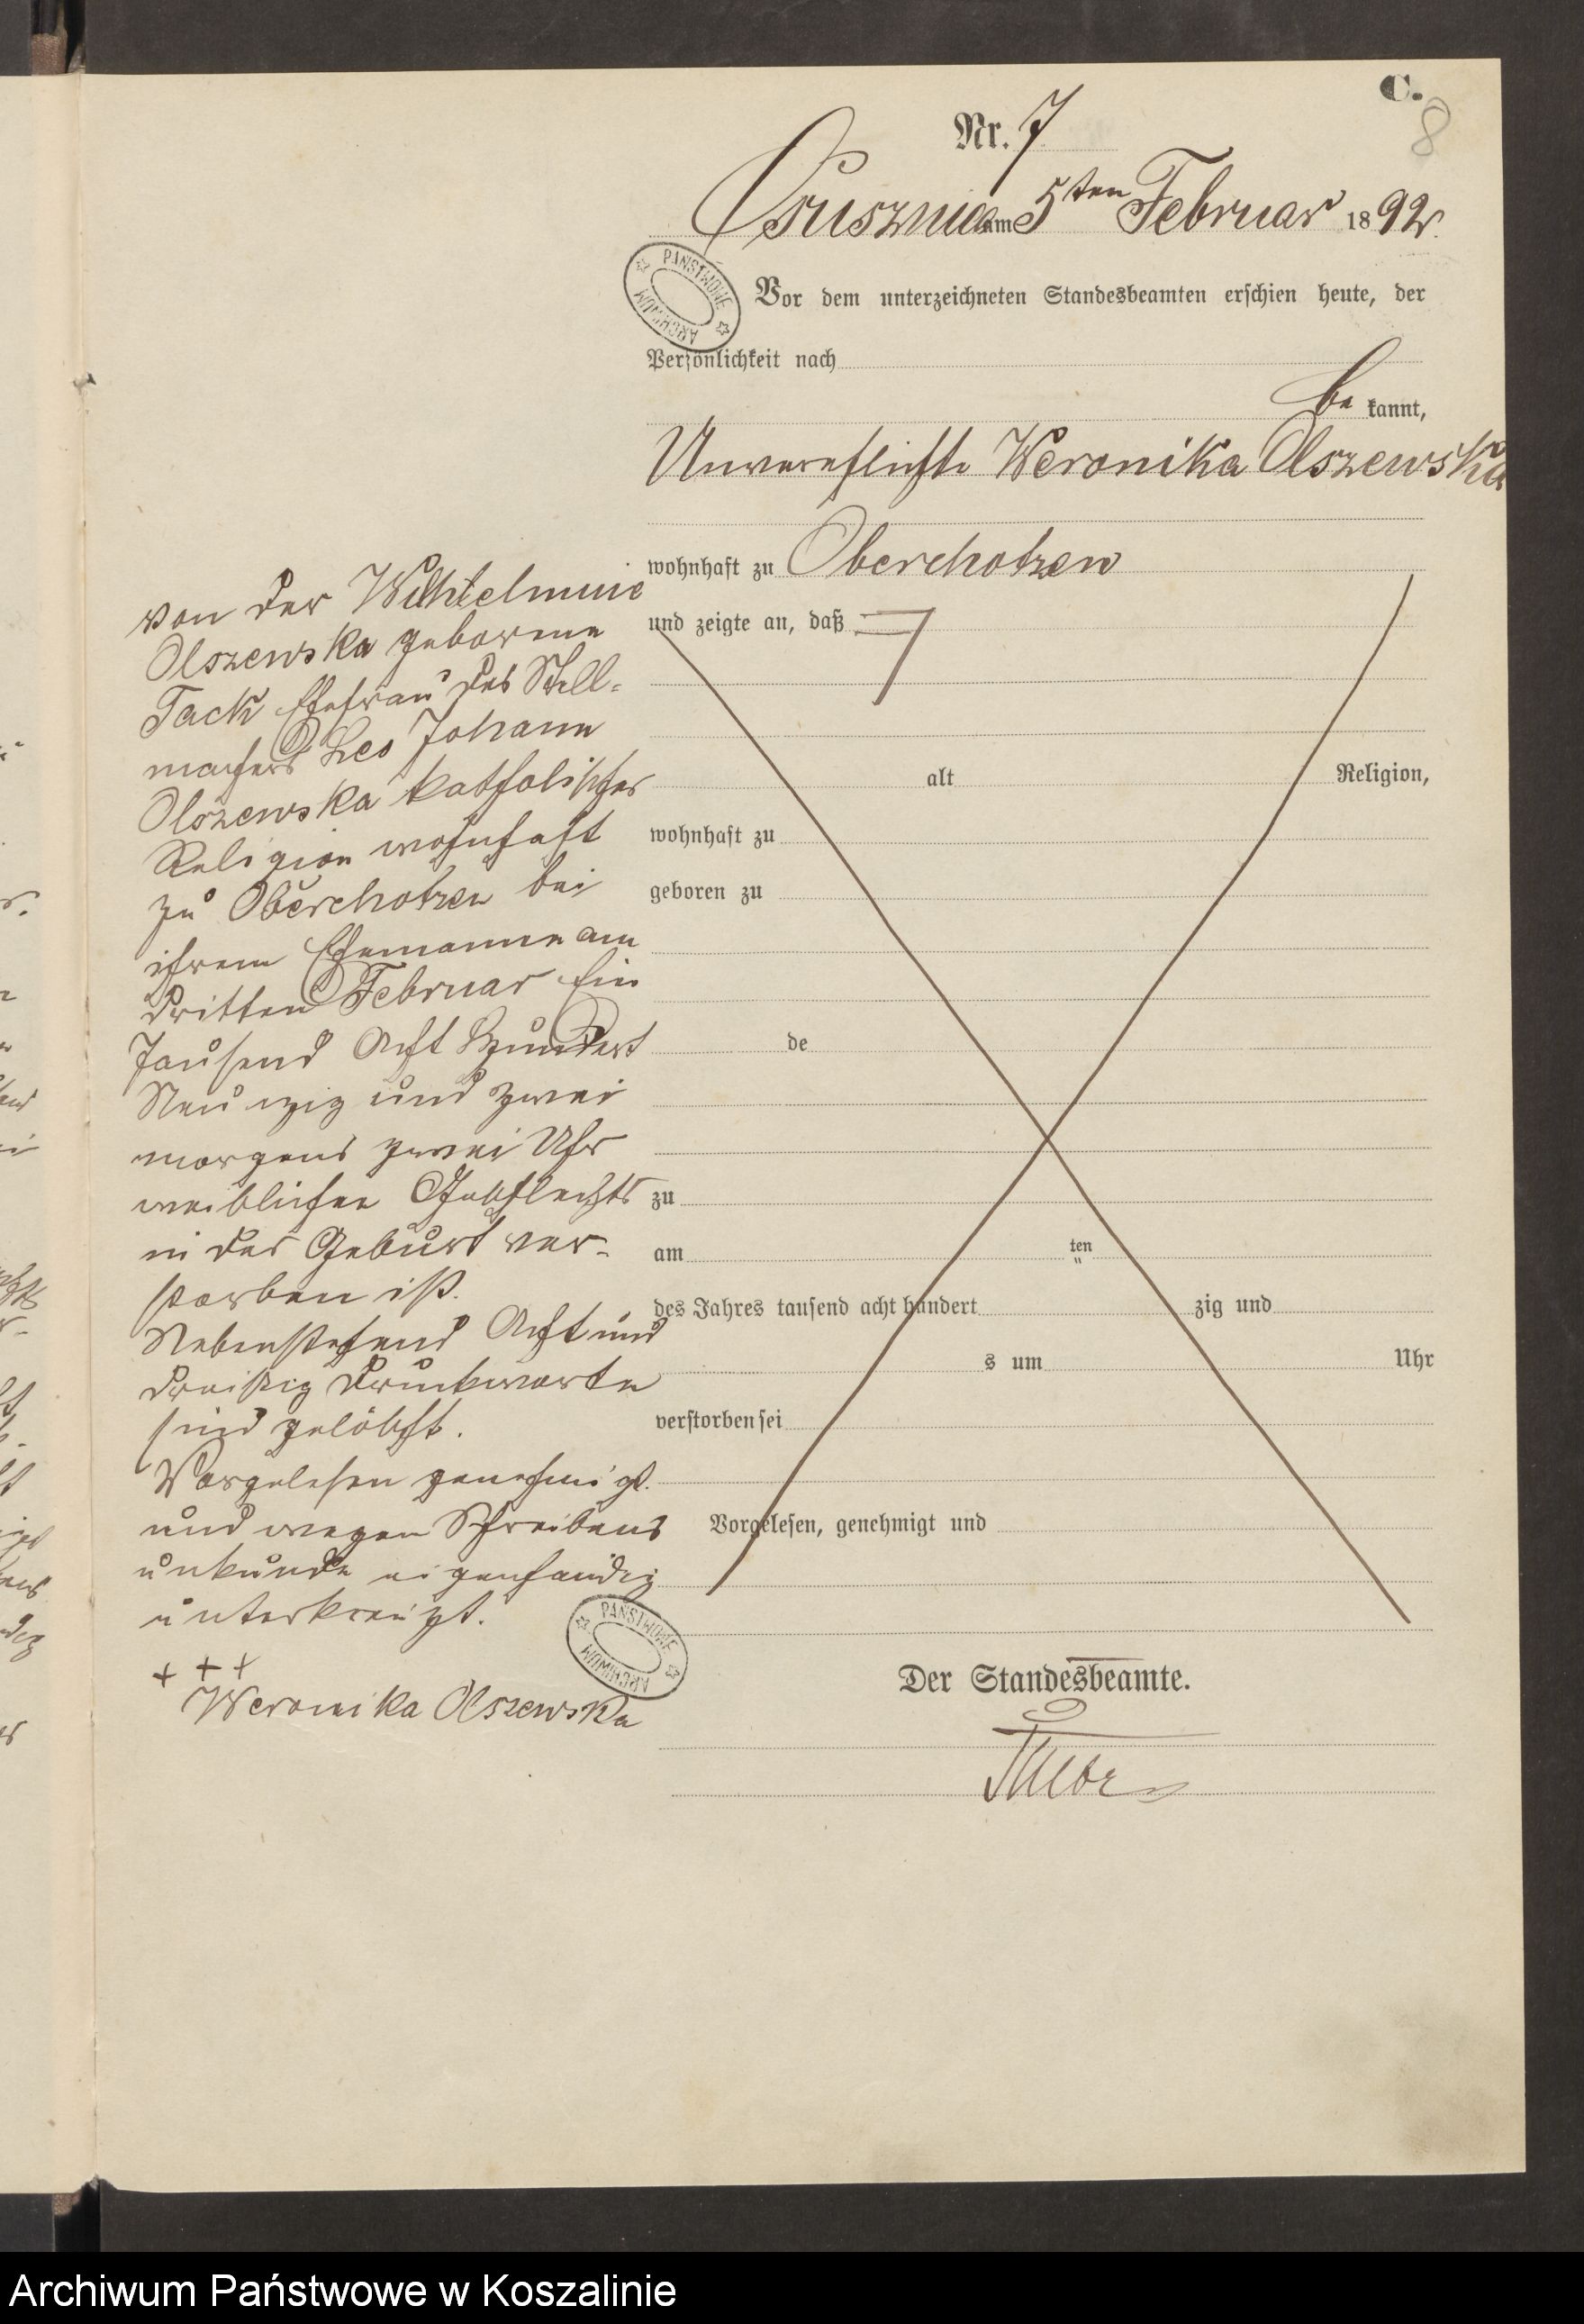 C.
8
Nr. 7
am 5ten Februar 1892.
PAŃSTWOWE ARCHIWUM
Vor dem unterzeichneten Standesbeamten erschien heute, der
Persönlichkeit nach
be kannt,
Unverehlichte Weronika Olszewska
wohnhaft zu Oberchotzen
und zeigte an, daß
alt Religion,
wohnhaft zu
geboren zu
de
zu
am ten
des Jahres tausend acht hundert zig und
s um Uhr
verstorben sei
Vorgelesen, genehmigt und
von der Wilhelmine
Olszewska geborene
Tack Ehefrau des Stell-
machers Leo Johann
Olszewska katholischer
Religion wohnhaft
zu Oberchotzen bei
ihrem Ehemanne am
dritten Februar Ein
Tausend Acht Hundert
Neunzig und zwei
morgens zwei Uhr
weiblichen Geschlechts
in der Geburt ver-
storben ist.
Nebenstehend Acht und
dreißig Druckworte
sind gelöscht.
Vorgelesen genehmigt
und wegen Schreibens
unkunde eigenhändig
unterkreuzt.
+ + +
Weronika Olszewska
PAŃSTWOWE ARCHIWUM
Der Standesbeamte.
Archiwum Państwowe w Koszalinie